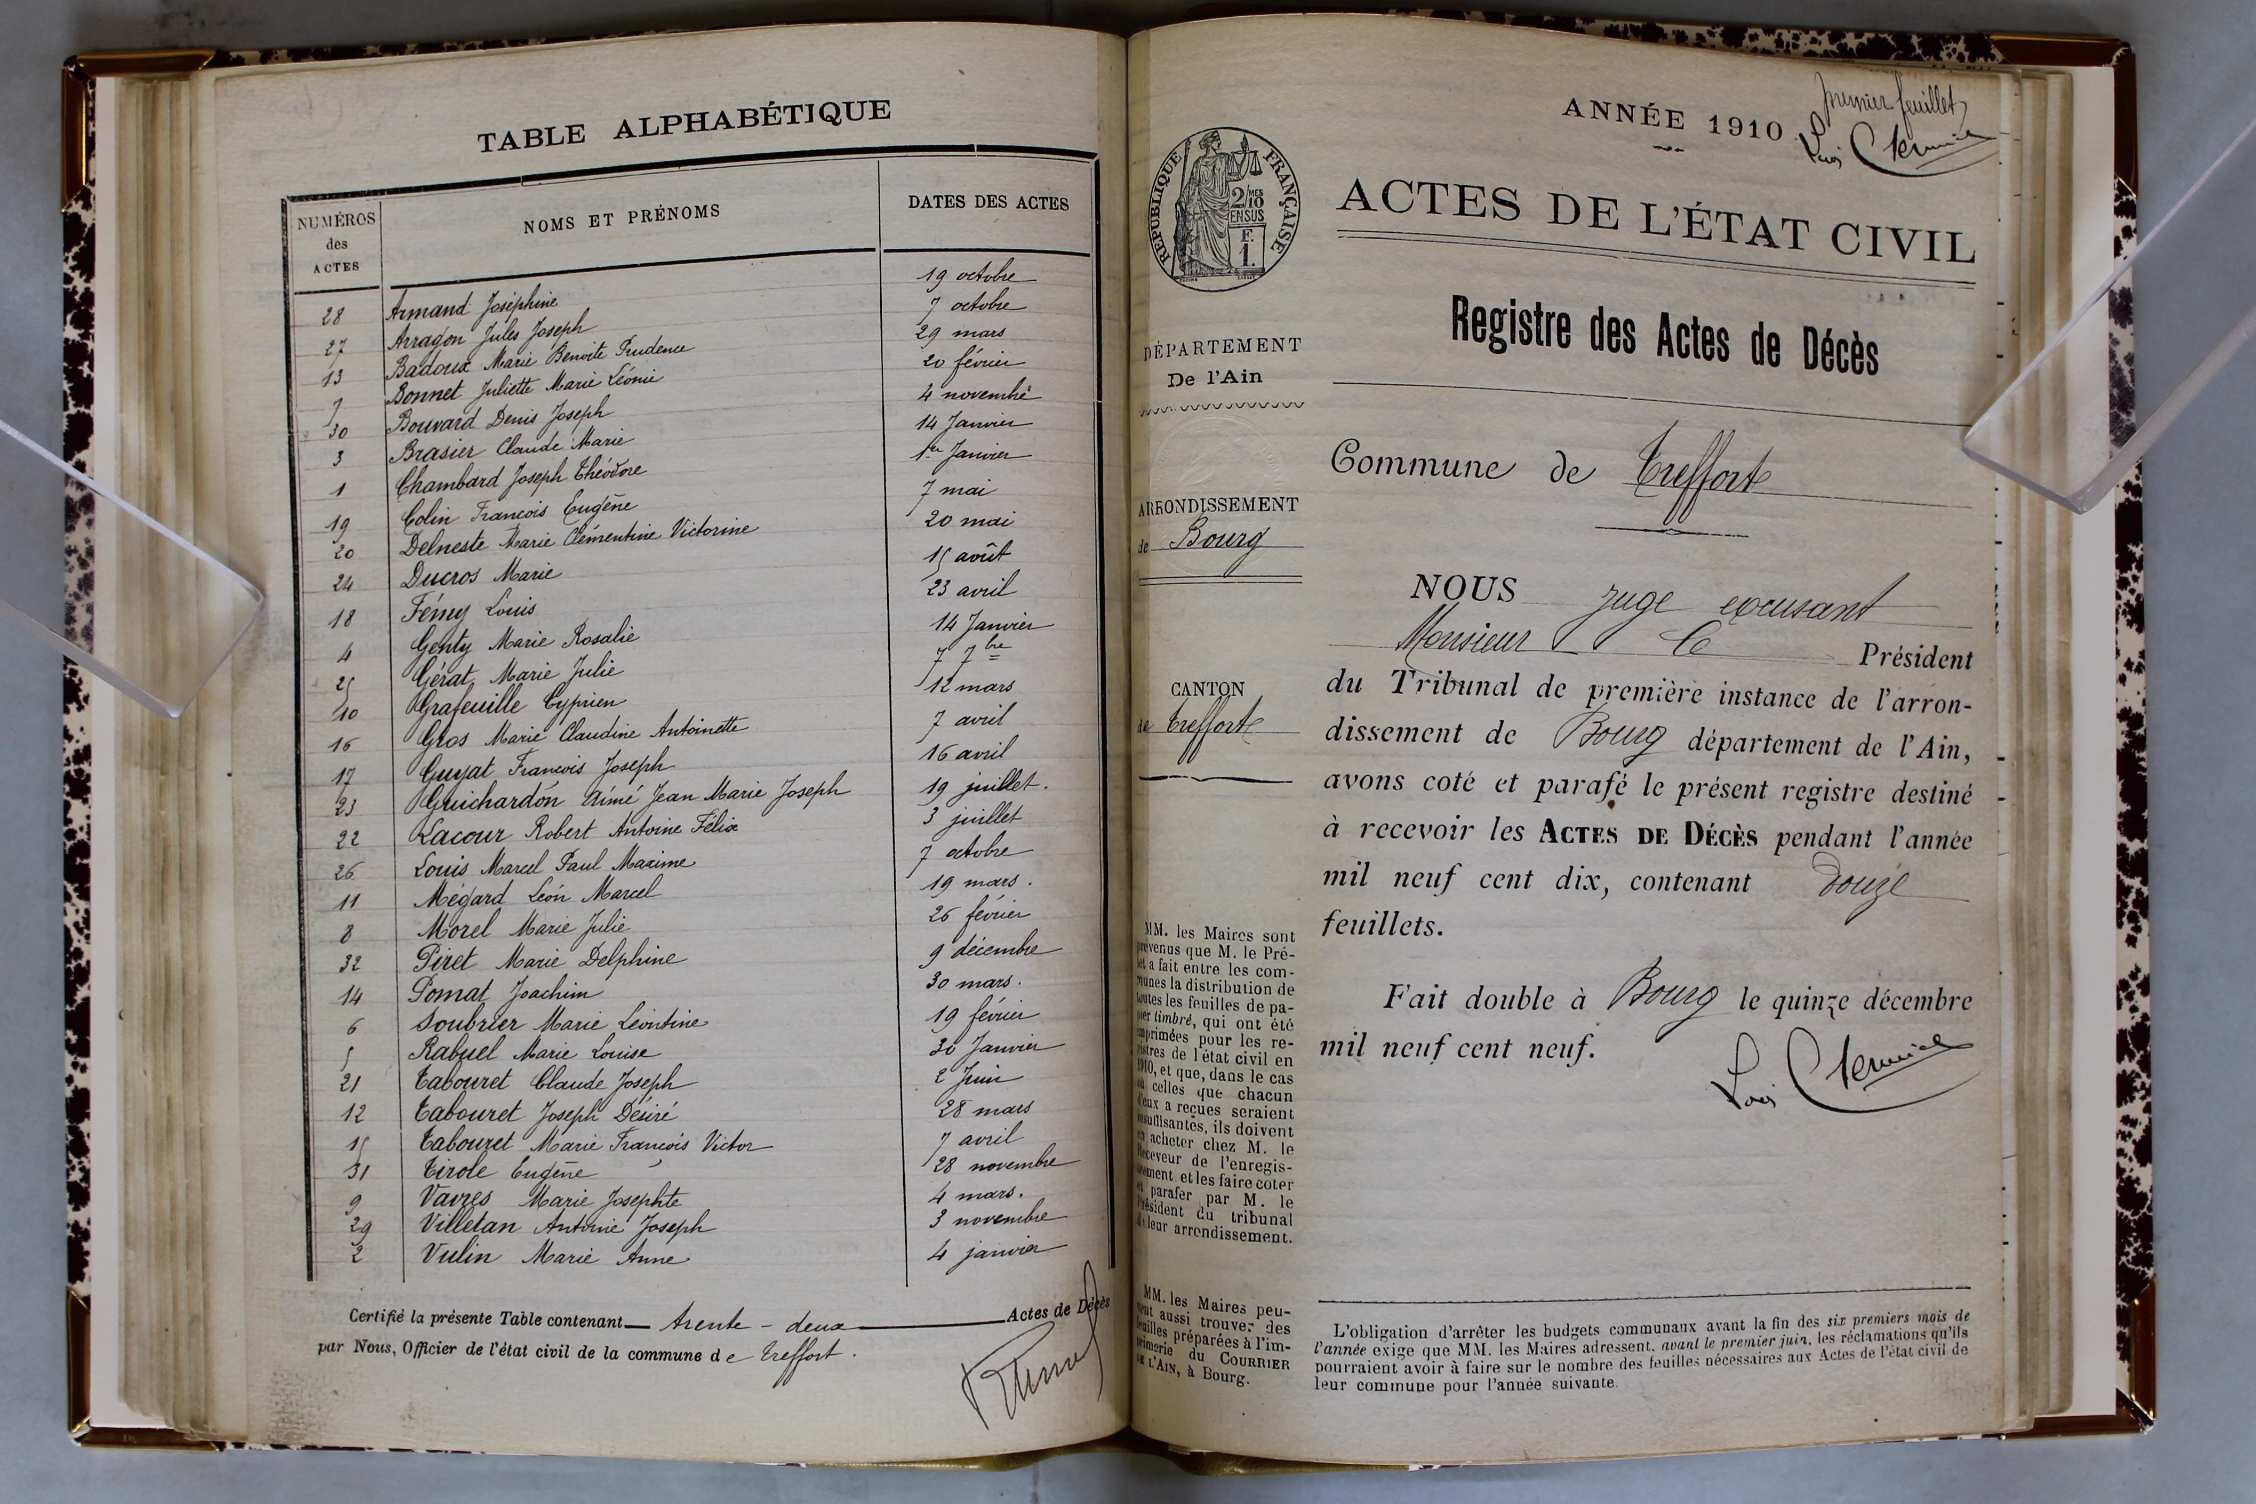 TABLE ALPHABÉTIQUE
NUMÉROS des ACTES NOMS ET PRÉNOMS DATES DES ACTES
28 Armand Joséphine 19 octobre
27 Arragon Jules Joseph 7 octobre
13 Badoux Marie Benoite Prudence 29 mars
7 Bonnet Juliette Marie Léonie 20 février
30 Bouvard Denis Joseph 4 novembre
3 Brasier Claude Marie 14 Janvier
1 Chambard Joseph Théodore 1er Janvier
19 Colin François Eugène 7 mai
20 Delneste Marie Clémentine Victorine 20 mai
24 Ducros Marie 15 août
18 Fémy Louis 23 avril
4 Genty Marie Rosalie 14 Janvier
25 Gérat Marie Julie 7 7bre
10 Grafeuille Cyprien 12 mars
16 Gros Marie Claudine Antoinette 7 avril
17 Guyat François Joseph 16 avril
23 Guichardon Aimé Jean Marie Joseph 19 juillet.
22 Lacour Robert Antoine Félix 3 juillet
26 Louis Marcel Paul Maxime 7 octobre
11 Mégard Léon Marcel 19 mars.
8 Morel Marie Julie 26 février
32 Piret Marie Delphine 9 décembre
14 Pomat Joachim 30 mars.
6 Soubrier Marie Léontine 19 février
5 Rabuel Marie Louise 30 Janvier
21 Tabouret Claude Joseph 2 Juin
12 Tabouret Joseph Désiré 28 mars
15 Tabouret Marie François Victor 7 avril
31 Tirole Eugène 28 novembre
9 Vavres Marie Josephte 4 mars.
29 Villetan Antoine Joseph 3 novembre
2 Vulin Marie Anne 4 janvier
Certifié la présente Table contenant trente-deux Actes de Décès
par Nous, Officier de l'état civil de la commune de Treffort.
premier feuillet
ANNÉE 1910
RÉPUBLIQUE FRANÇAISE
2/10 MES
EN SUS
F.
1.
ACTES DE L'ÉTAT CIVIL
Registre des Actes de Décès
DÉPARTEMENT
De l'Ain
ARRONDISSEMENT
de Bourg
CANTON
de Treffort
MM. les Maires sont
prévenus que M. le Pré-
fet a fait entre les com-
munes la distribution de
toutes les feuilles de pa-
pier timbré, qui ont été
imprimées pour les re-
gistres de l'état civil en
1910, et que, dans le cas
où celles que chacun
d'eux a reçues seraient
insuffisantes, ils doivent
en acheter chez M. le
Receveur de l'enregis-
trement et les faire coter
et parafer par M. le
Président du tribunal
de leur arrondissement.
MM. les Maires peu-
vent aussi trouver des
feuilles préparées à l'im-
primerie du COURRIER
DE L'AIN, à Bourg.
Commune de Treffort
NOUS juge excusant
Monsieur le Président
du Tribunal de première instance de l'arron-
dissement de Bourg département de l'Ain,
avons coté et parafé le présent registre destiné
à recevoir les ACTES DE DÉCÈS pendant l'année
mil neuf cent dix, contenant douze
feuillets.
Fait double à Bourg le quinze décembre
mil neuf cent neuf.
L'obligation d'arrêter les budgets communaux avant la fin des six premiers mois de
l'année exige que MM. les Maires adressent, avant le premier juin, les réclamations qu'ils
pourraient avoir à faire sur le nombre des feuilles nécessaires aux Actes de l'état civil de
leur commune pour l'année suivante.